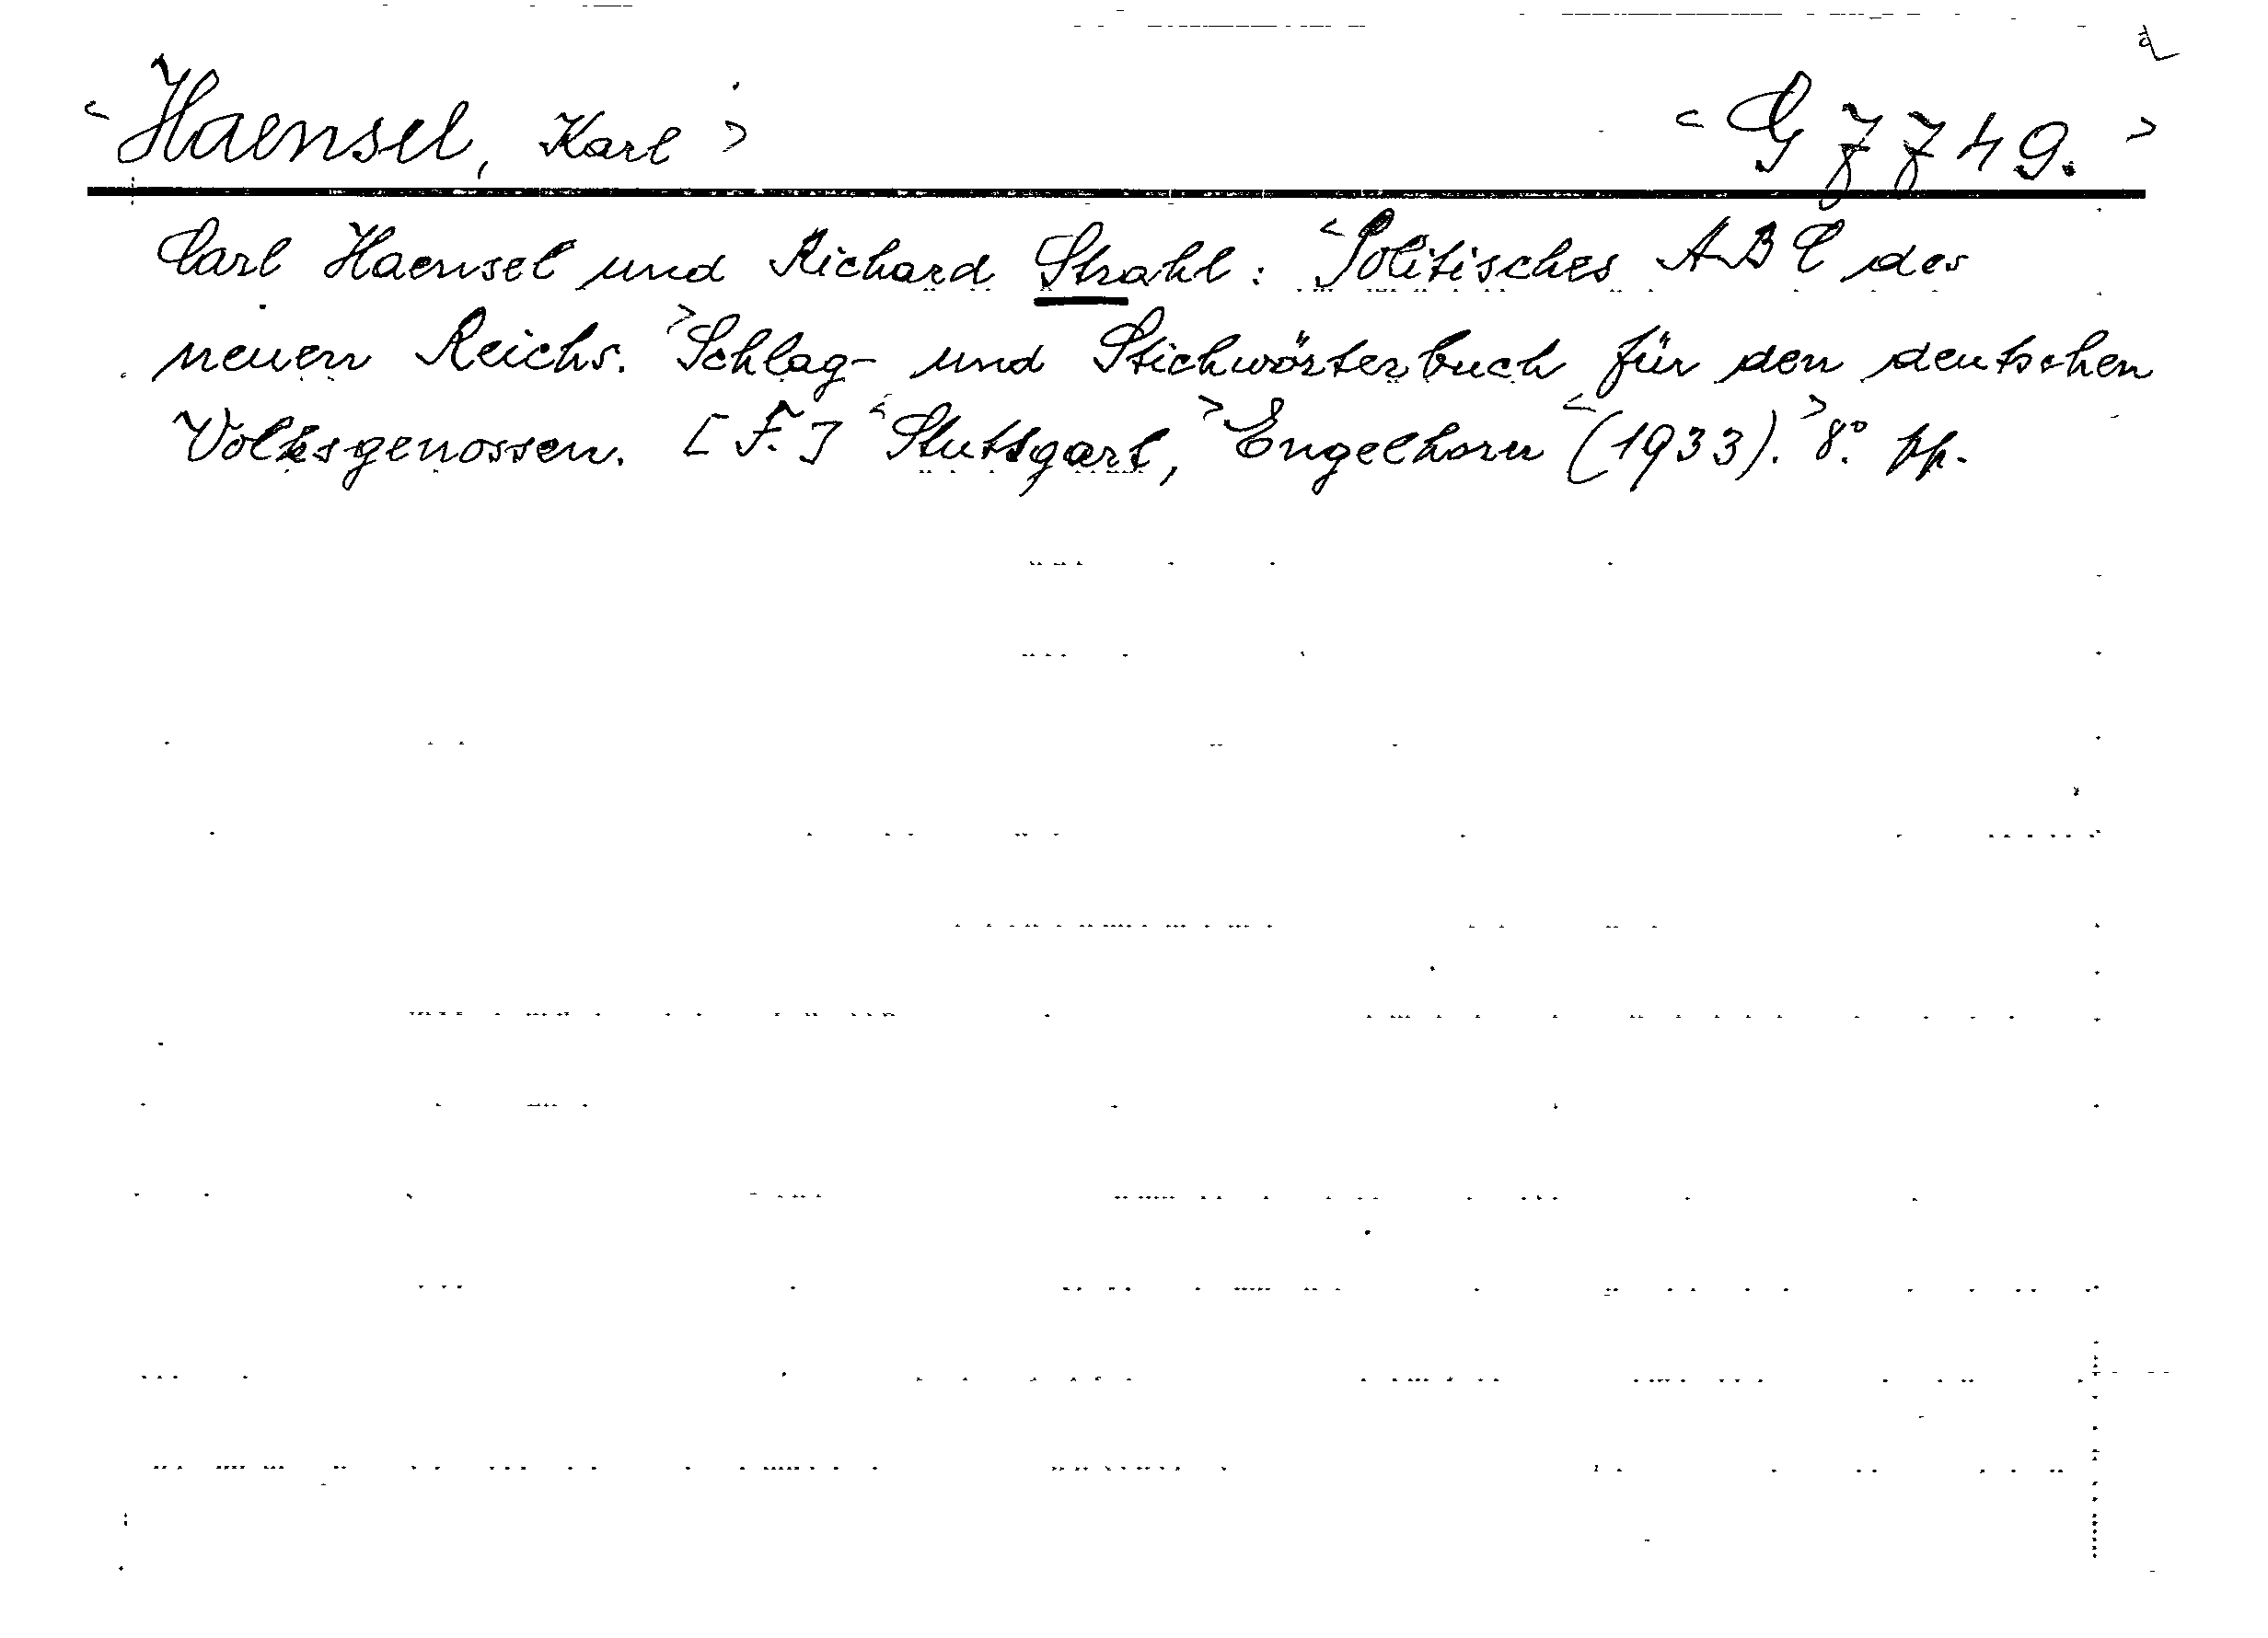 <Haensel, Karl> <G 7749.>
Carl Haensel und Richard Strahl: <Politisches ABC des
neuen Reichs.> Schlag- und Stichwörterbuch für den deutschen
Volksgenossen. [F.] <Stuttgart,> Engelhorn <(1933).> 8°. pp.